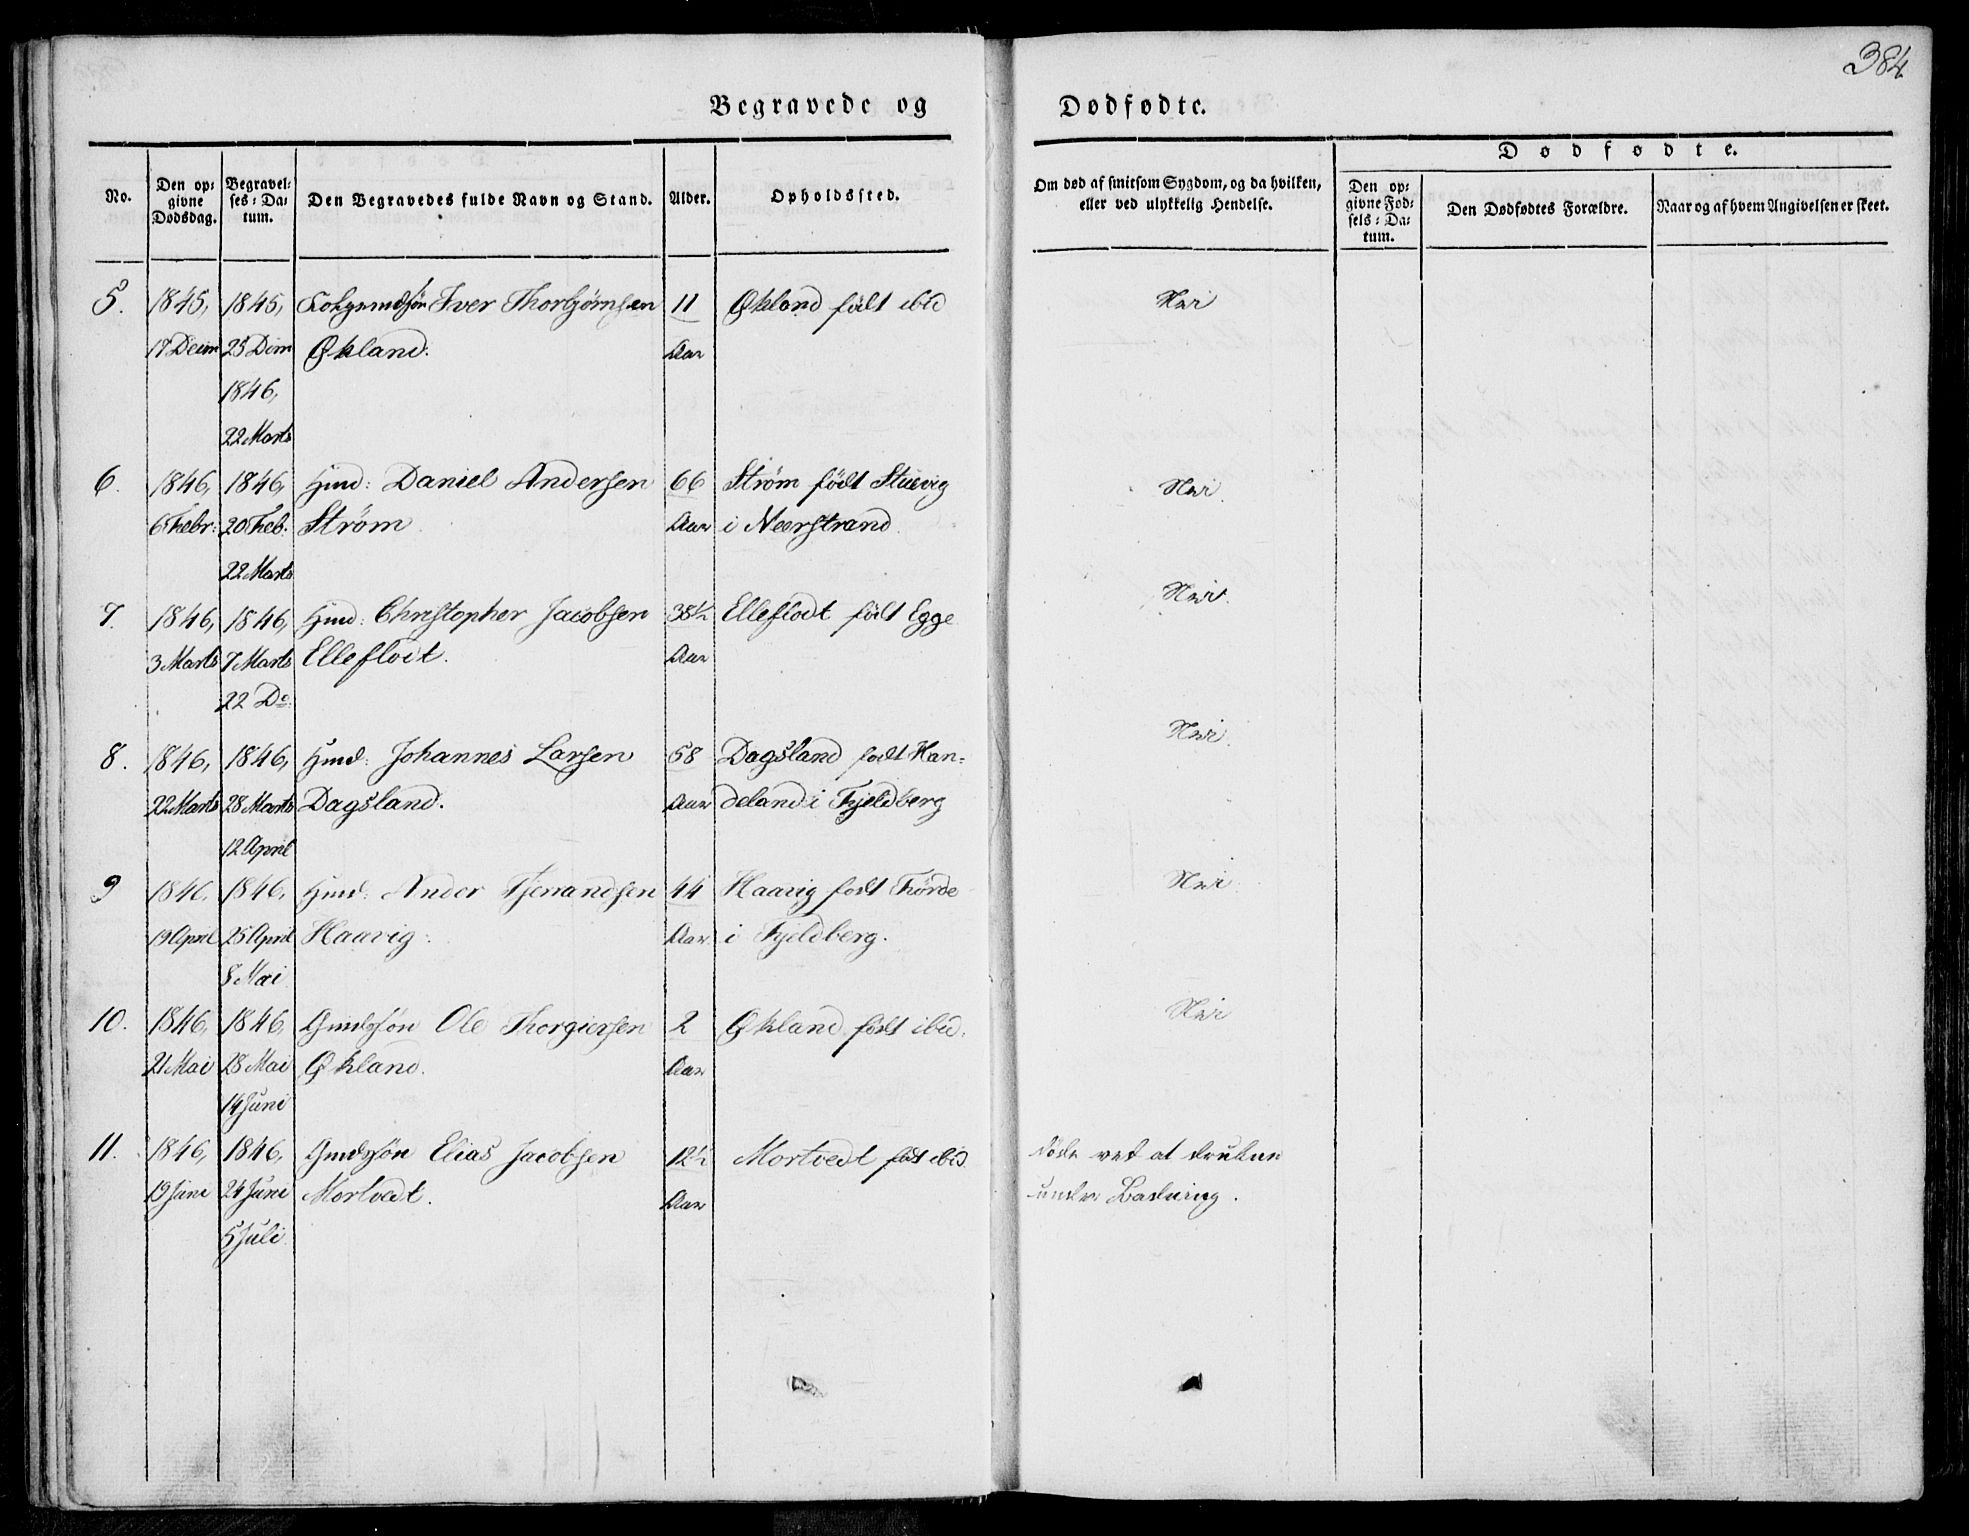 384
Begravede og
Dødfødte.
No.
Den op:
givne
Dødsdag.
Begravel:
ses: Da:
tum.
Den Begravedes fulde Navn og Stand.
Alder.
Opholdssted.
Om død af smitsom Sygdom, og da hvilken,
eller ved ulykkelig Hendelse.
Dødfødte.
Den op:
givne Fød:
sels: Da:
tum.
Den Dødfødtes Forældre.
Naar og af hvem Angivelsen er skeet.
5. 1845, 1845, Iver Thorbjørnsen 11 Økland født ibid Nei
17 Decm 25 Dcm Økland. Aar
1846,
22 Marts
6. 1846, 1846, Gmd: Daniel Andersen 66 Strøm født Stuevig Nei.
6 Febr: 20 Feb: Strøm Aar i Neerstrand
22 Marts
7. 1846, 1846, Gmd: Christopher Jacobsen 38½ Elleflodt født Egge Nei.
3 Marts 7 Marts Ellefloct. Aar
22 Do
8. 1846, 1846, Gmd: Johannes Larsen 58 Dagsland født Han= Nei.
22 Marts 28 Marts Dagsland. Aar deland i Fjeldberg
12 April
9 1846, 1846, Gmd: Ander 44 Haavig født Førde Nei
19 April 25 April Haavig. Aar i Fjeldberg.
8 Mai
10. 1846, 1846, Gmdssøn Ole Thorgiersen 2 Økland født ibid. Nei
21 Mai 28 Mai Økland. Aar
14 Juni
11. 1846, 1846, Gmdssøn Elias Jacobsen 12½ Mortvedt født ibid døde ved at drukne
19 Juni 24 Juni Mortvedt. Aar under Badning.
5 Juli